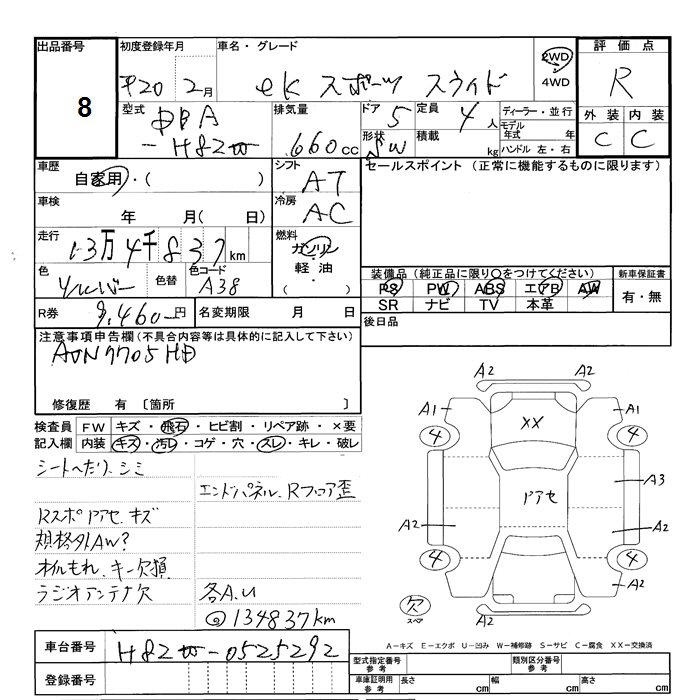 出品番号 初度登録年月 車名・グレード 2WD 4WD 評価点
8 平20年 2月 eK スポーツ スライド R
型式 DBA -H82W 排気量 .660cc ドア 5 定員 4人 ディーラー・並行
形状 SW 積載 kg モデル年式 年 ハンドル 左・右
外装 内装
C C
車歴 自家用・( ) シフト AT セールスポイント (正常に機能するものに限ります)
車検 年 月( 日) 冷房 AC
走行 13万4千837km 燃料 ガソリン・軽油・( )
色 シルバー 色替 色コード A38
装備品 (純正品に限り○をつけてください) 新車保証書
PS PW ABS エアB AW 有・無
SR ナビ TV 本革
R券 9,460円 名変期限 月 日 後日品
注意事項申告欄(不具合内容等は具体的に記入して下さい)
AVN7705HD
修復歴 有〔箇所 〕
検査員 FW キズ・飛石・ヒビ割・リペア跡・×要
記入欄 内装 キズ・汚レ・コゲ・穴・スレ・キレ・破レ
シートヘたり、シミ
エンドパネル、Rフロア歪
Rスポ ドアセ、キズ
規格外AW?
オイルもれ、キー欠損
ラジオアンテナ欠 各A.U
@134837km
A2 A2
A1 A1
4 XX 4
A3
ドアセ
A2 A2
4 4
A2
欠 スペア A2
A-キズ E-エクボ U-凹み W-補修跡 S-サビ C-腐食 XX-交換済
車台番号 H82W-0525292
型式指定番号 参考 類別区分番号 参考
登録番号 車庫証明用 参考 長さ cm 幅 cm 高さ cm